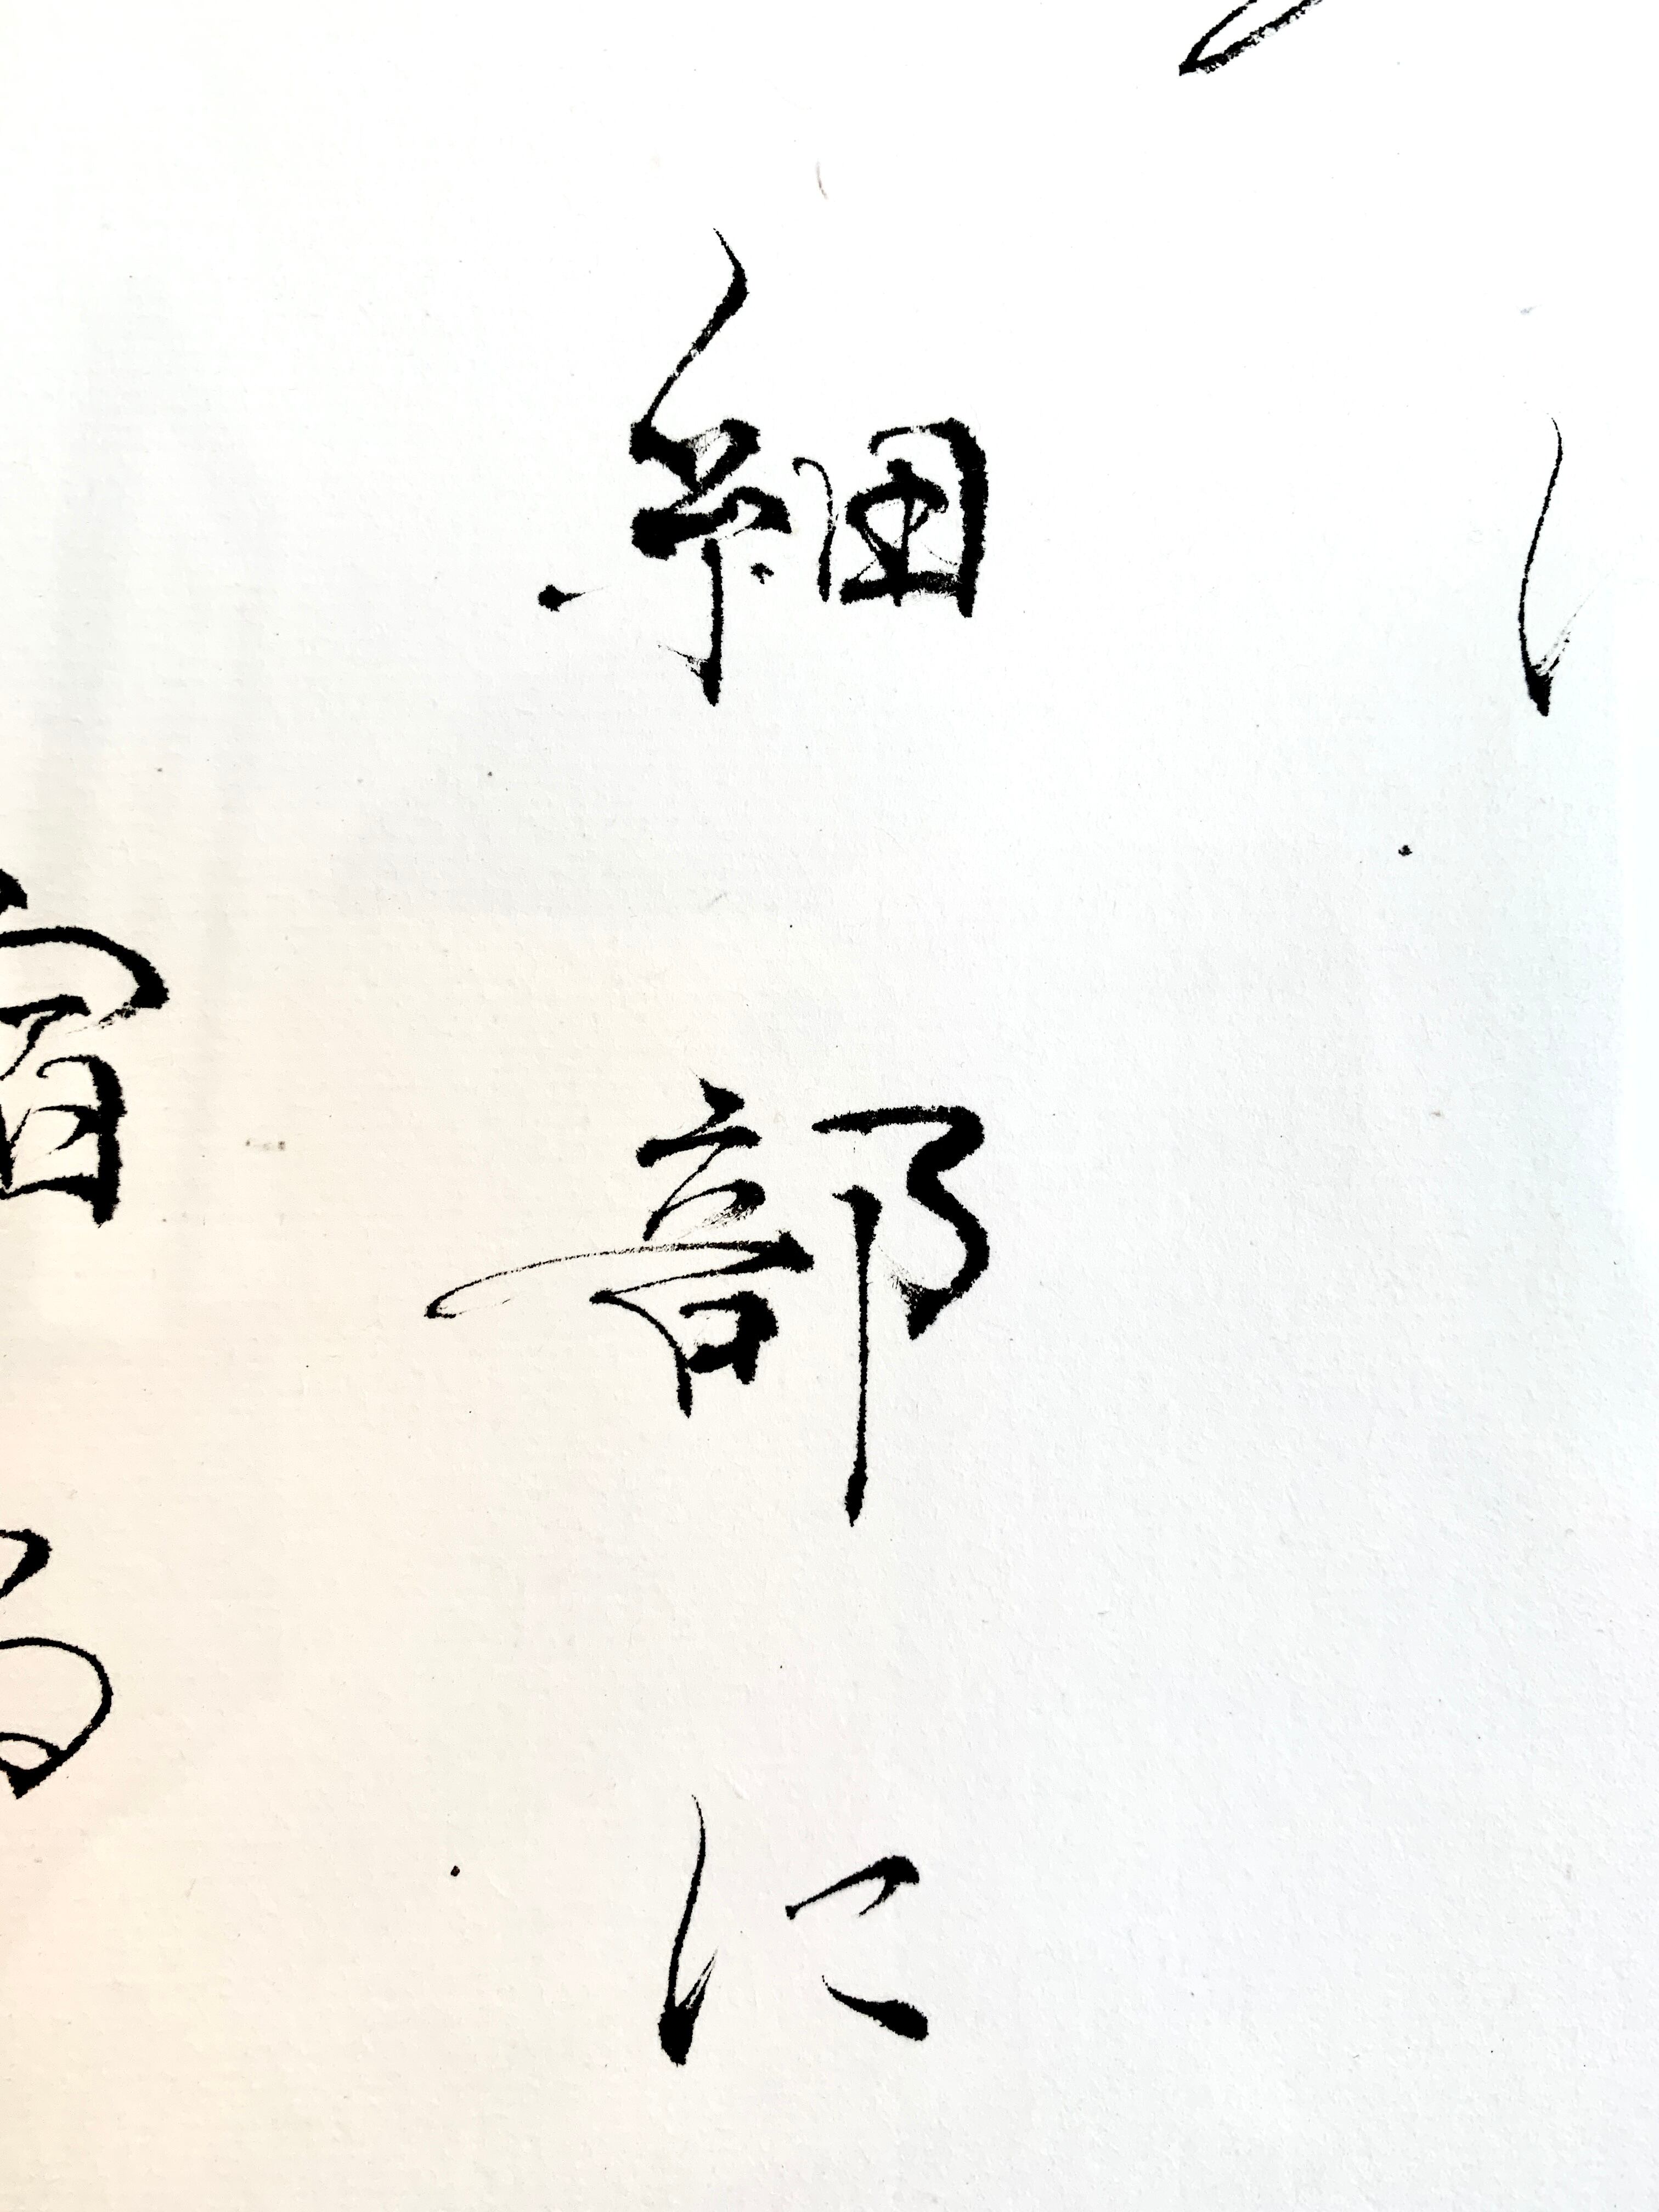 細部に
宿る